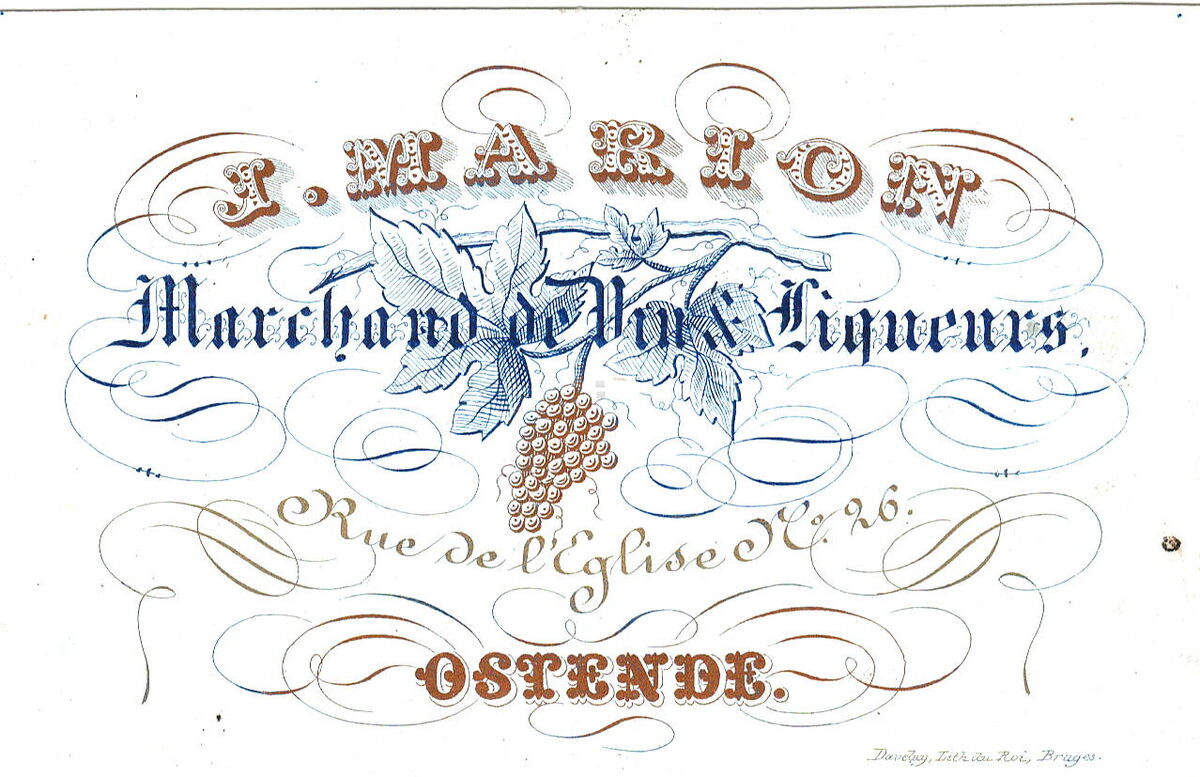 J. MARION
Marchand de Vin & Liqueurs,
Rue de l'Eglise No. 26.
OSTENDE.
Daveluy, Lith du Roi, Bruges.